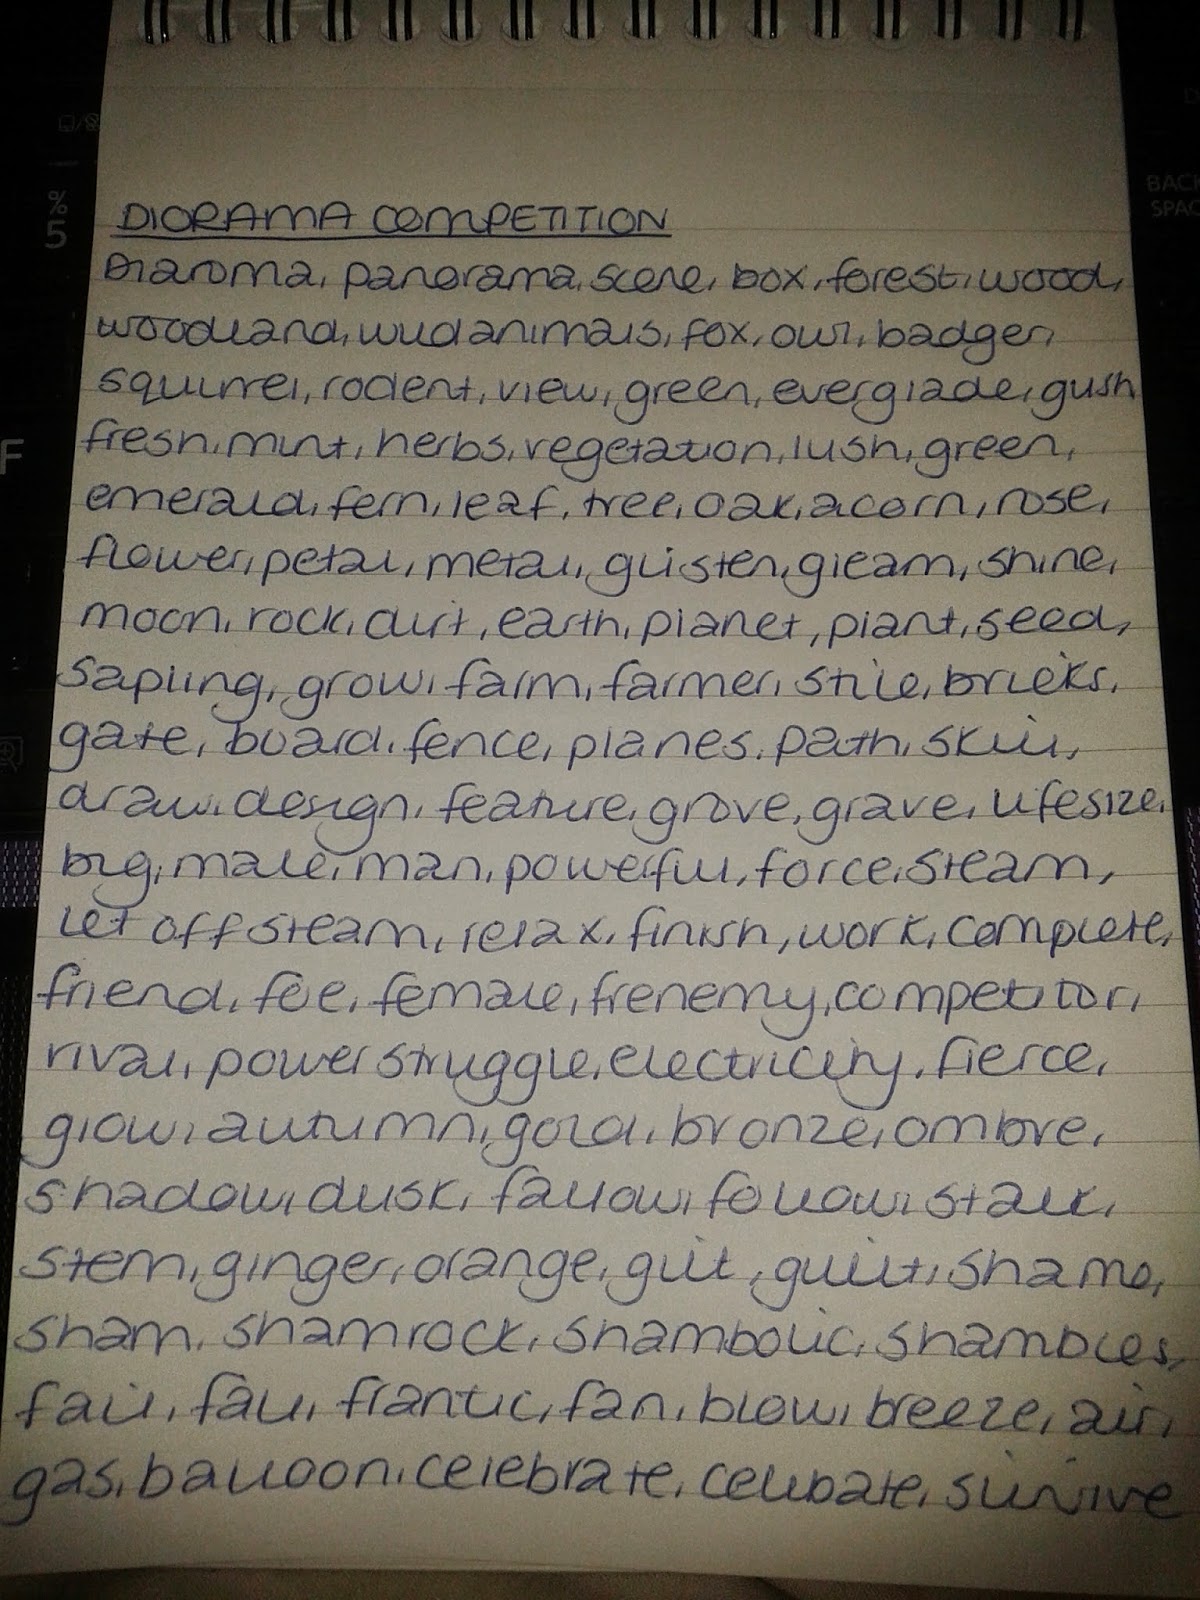 %
5
F
BACK
SPAC
DIORAMA COMPETITION
Diaroma, panorama, scene, box, forest, wood,
woodland, wild animals, fox, owl, badger,
squirrel, rodent, view, green, everglade, gush
fresh, mint, herbs, vegetation, lush, green,
emerald, fern, leaf, tree, oak, acorn, rose,
flower, petal, metal, glisten, gleam, shine,
moon, rock, dirt, earth, planet, plant, seed,
sapling, grow, farm, farmer, stile, bricks,
gate, board, fence, planes, path, skill,
draw, design, feature, grove, grave, lifesize,
big, male, man, powerful, force, steam,
let off steam, relax, finish, work, complete,
friend, foe, female, frenemy, competitor,
rival, power struggle, electricity, fierce,
glow, autumn, gold, bronze, ombre,
shadow, dusk, fallow, follow, stalk,
stem, ginger, orange, guilt, shame,
sham, shamrock, shambolic, shambles,
fail, fall, frantic, fan, blow, breeze, air,
gas, balloon, celebrate, celibate, survive